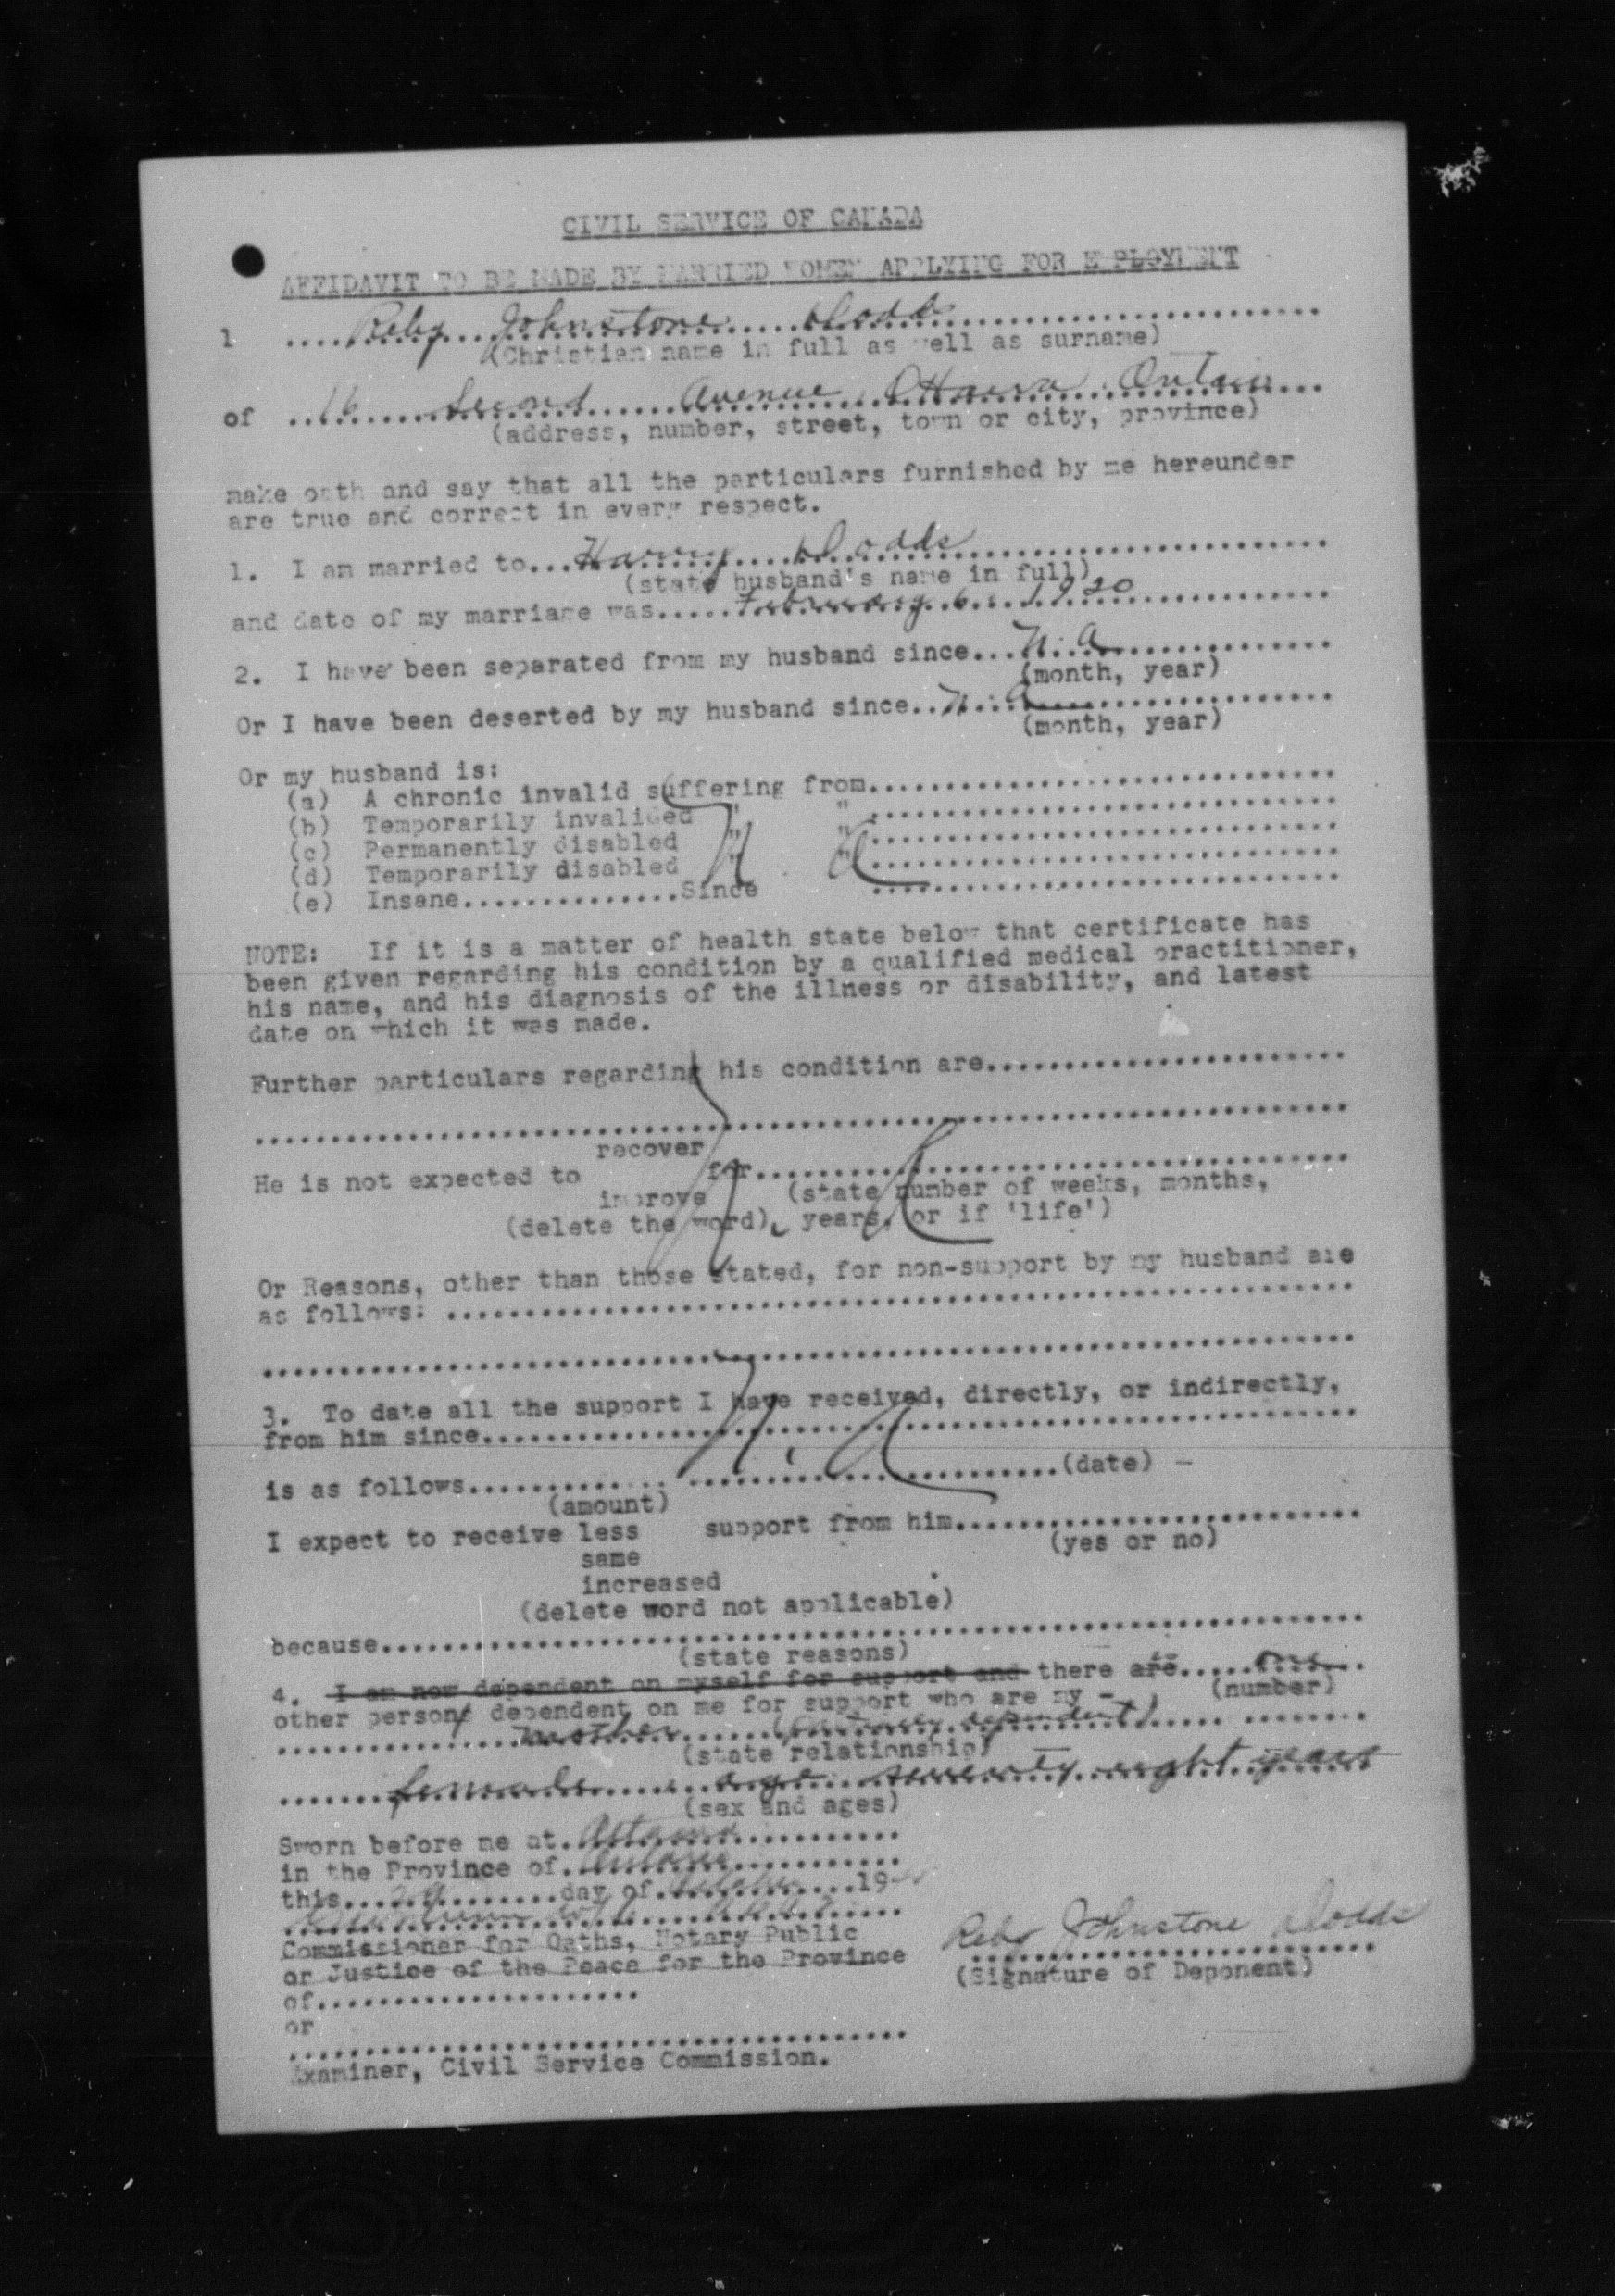 CIVIL SERVICE OF CANADA
AFFIDAVIT TO BE MADE BY MARRIED WOMEN APPLYING FOR EMPLOYMENT
I ....Reby Johnstone Dodds....
(Christian name in full as well as surname)
of ..16 Second Avenue Ottawa Ontario...
(address, number, street, town or city, province)
make oath and say that all the particulars furnished by me hereunder
are true and correct in every respect.
1. I am married to...Harvey Dodds....
(state husband's name in full)
and date of my marriage was.....February 6. 1920....
2. I have been separated from my husband since...N.A....
(month, year)
Or I have been deserted by my husband since..N.A....
(month, year)
Or my husband is:
(a) A chronic invalid suffering from....
(b) Temporarily invalided " "....
(c) Permanently disabled " "....
(d) Temporarily disabled " "....
(e) Insane...............Since ....
N.A
NOTE: If it is a matter of health state below that certificate has
been given regarding his condition by a qualified medical practitioner,
his name, and his diagnosis of the illness or disability, and latest
date on which it was made.
Further particulars regarding his condition are....
....
recover
He is not expected to for....
improve (state number of weeks, months,
(delete the word), years, or if 'life')
N A
Or Reasons, other than those stated, for non-support by my husband are
as follows: ....
....
3. To date all the support I have received, directly, or indirectly,
from him since....
N.A
is as follows.... ....(date) -
(amount)
I expect to receive less support from him....
same (yes or no)
increased
(delete word not applicable)
because....
(state reasons)
4. I am now dependent on myself for support and there are.....one....
other persons dependent on me for support who are my - (number)
....mother (partially dependent)....
(state relationship)
....female age seventy eight years
(sex and ages)
Sworn before me at.Ottawa....
in the Province of.Ontario....
this...29....day of....19
....
Commissioner for Oaths, Notary Public
or Justice of the Peace for the Province
of....
Reby Johnstone Dodds
(Signature of Deponent)
or
....
Examiner, Civil Service Commission.